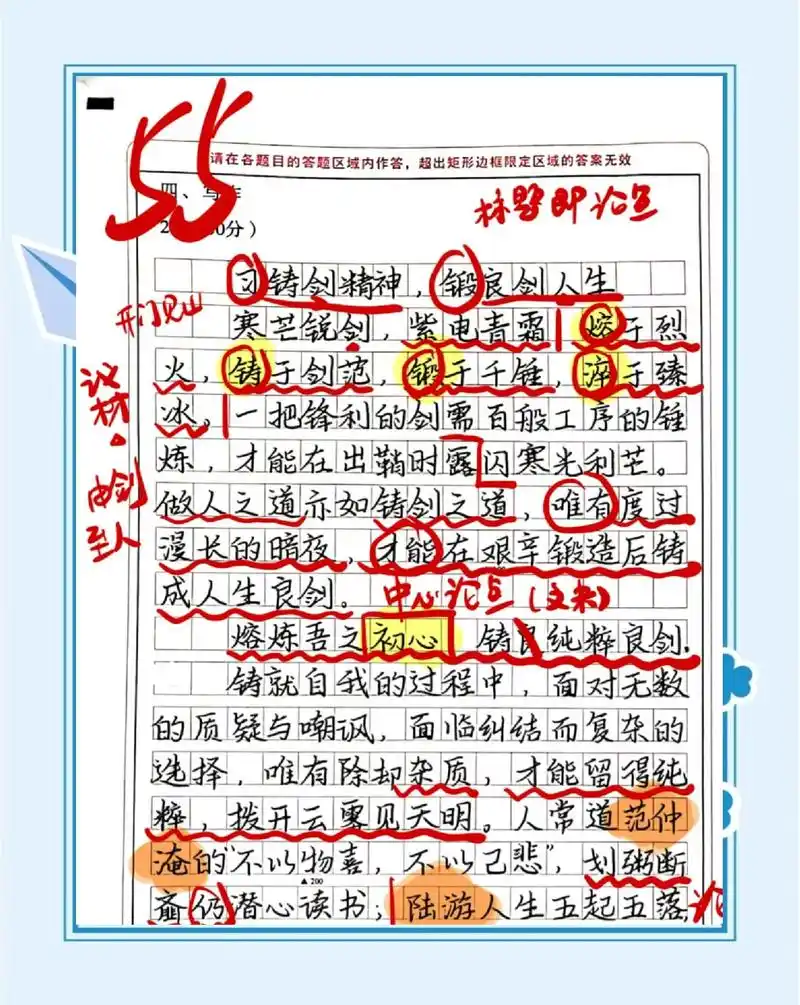 55
请在各题目的答题区域内作答，超出矩形边框限定区域的答案无效
四、写作
标题即论点
习铸剑精神，锻良剑人生
开门见山
寒芒锐剑，紫电青霜 熔于烈
火，铸于剑范，锻于千锤，淬于臻
议材
冰。一把锋利的剑需百般工序的锤
炼，才能在出鞘时露闪寒光利芒。
由剑
做人之道亦如铸剑之道，唯有度过
到人
漫长的暗夜，才能在艰辛锻造后铸
成人生良剑。 中心论点（文末）
熔炼吾之初心 铸良纯粹良剑.
铸就自我的过程中，面对无数
的质疑与嘲讽，面临纠结而复杂的
选择，唯有除却杂质，才能留得纯
粹，拨开云雾见天明。人常道范仲
淹的“不以物喜，不以己悲”，划粥断
▲200
齑仍潜心读书；陆游人生五起五落 论